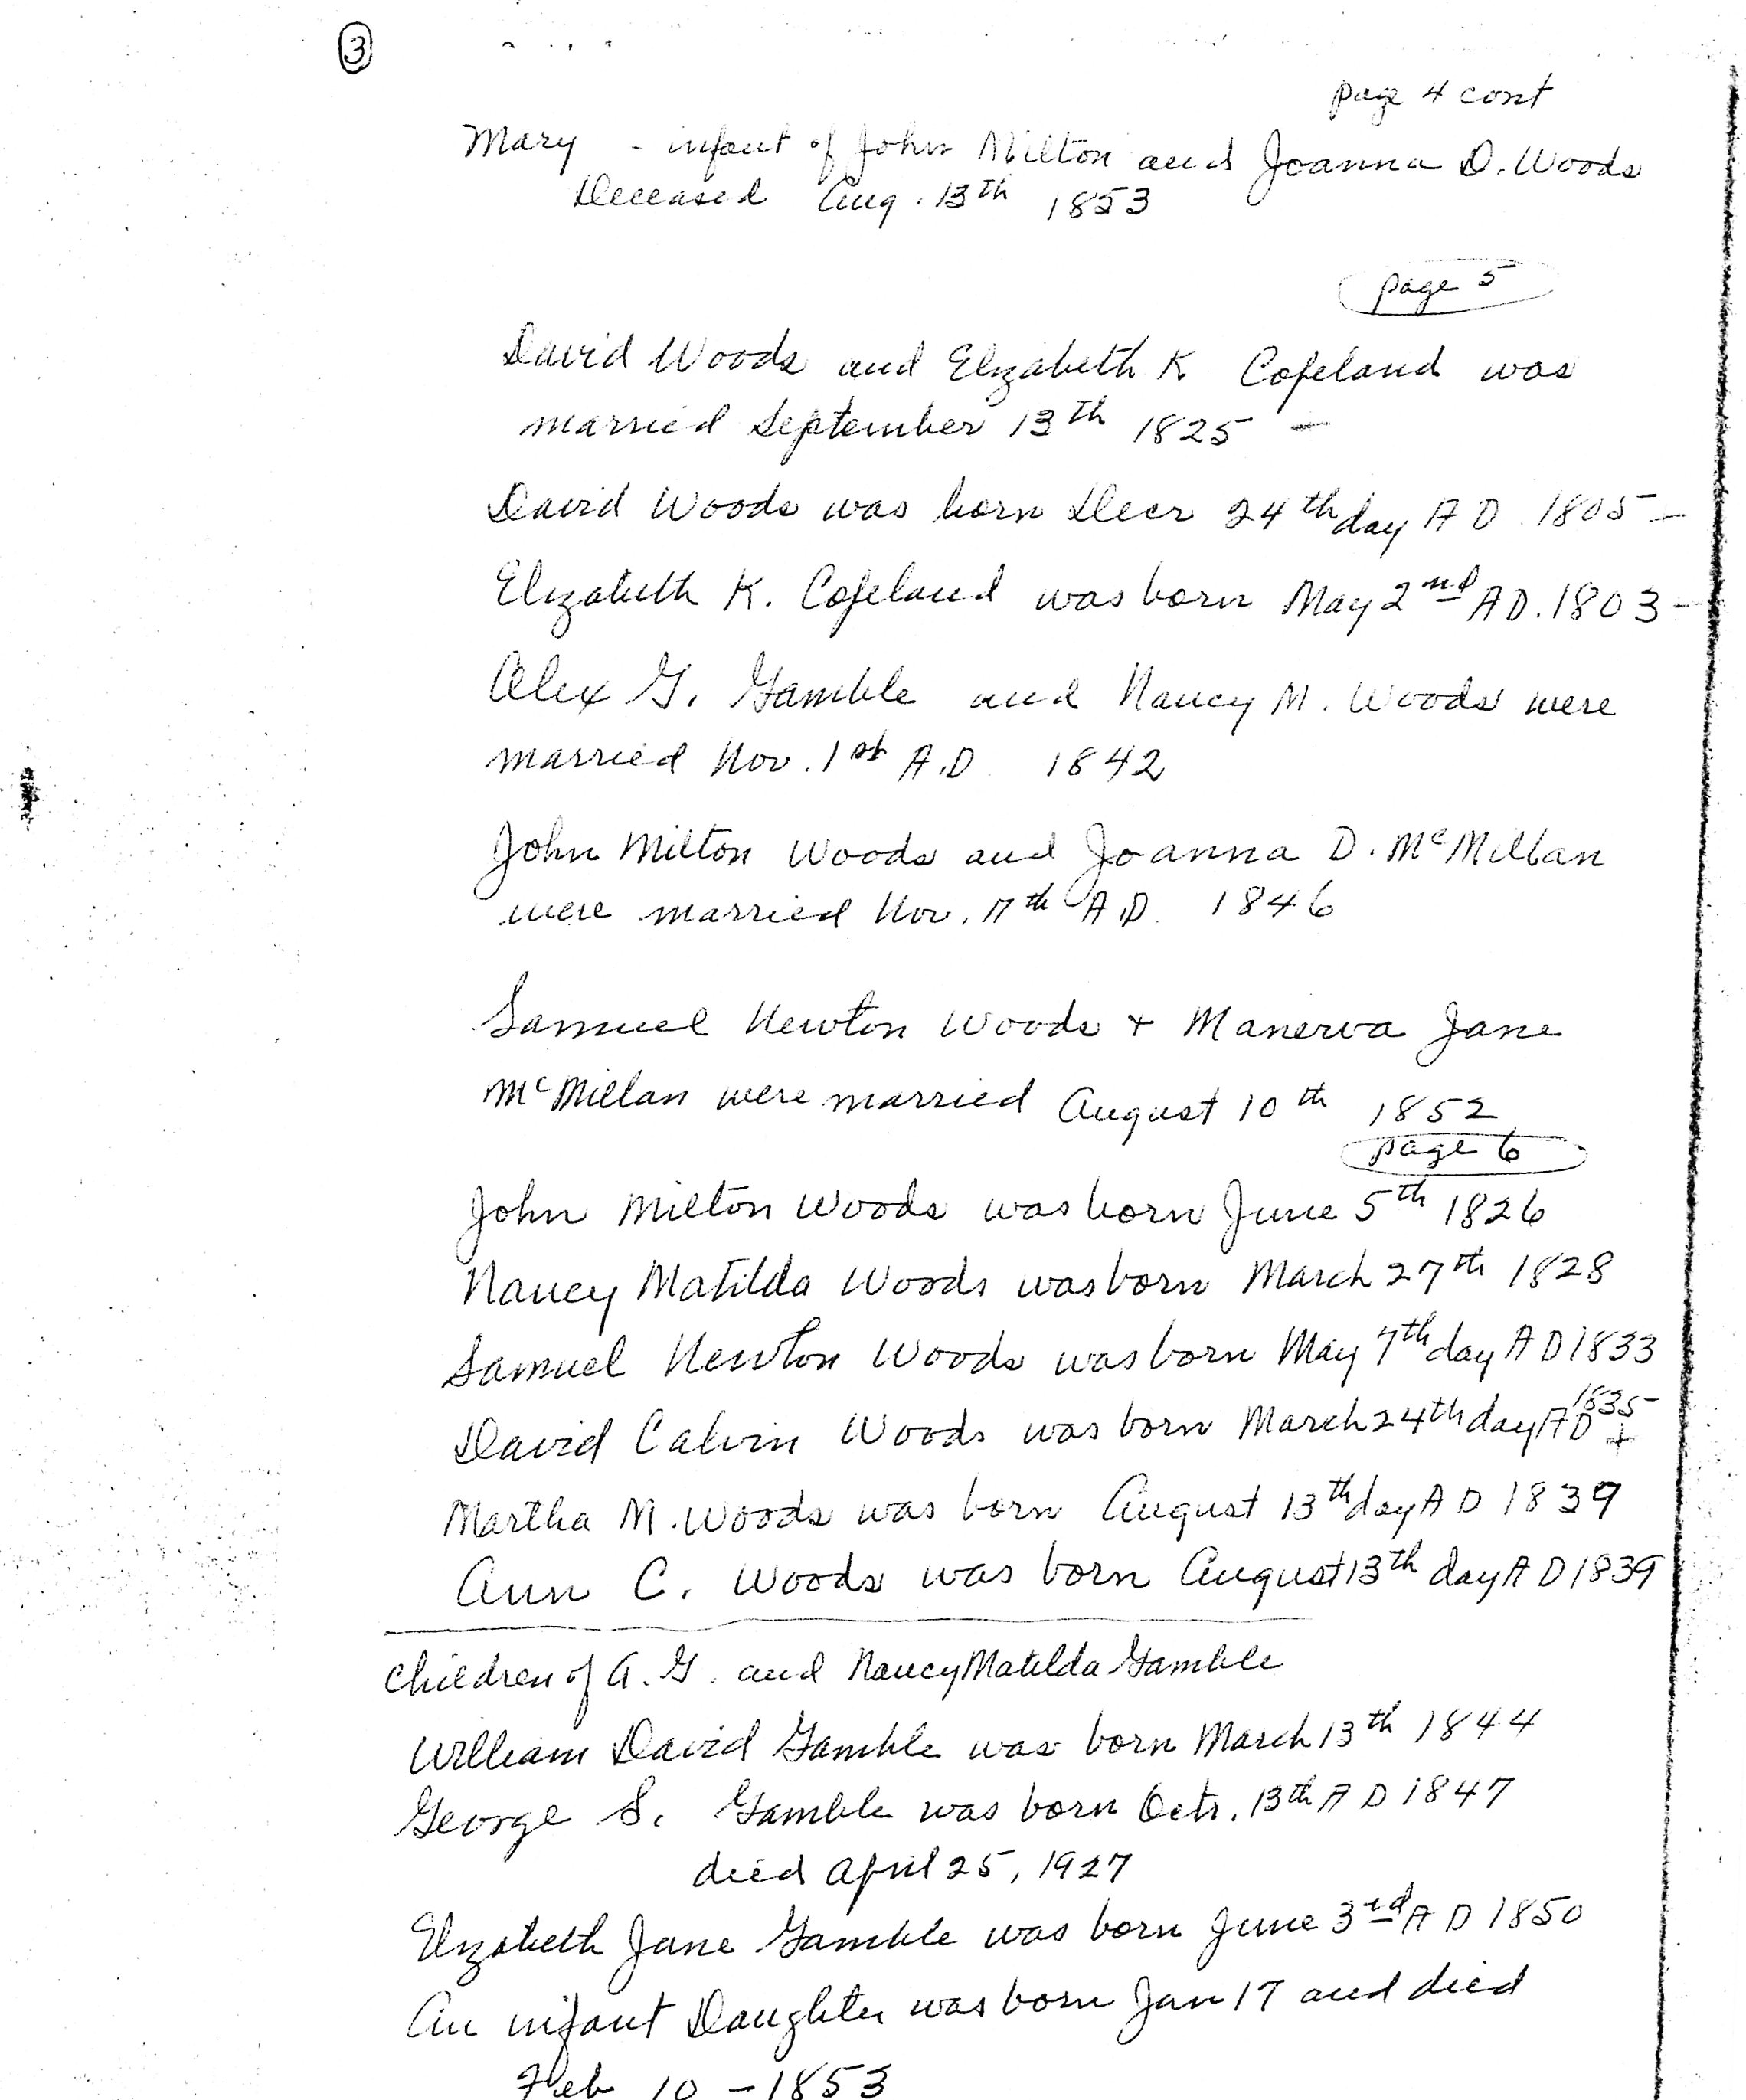 3
page 4 cont
Mary - infant of John Milton and Joanna D. Woods
Deceased Aug. 13th 1853
page 5
David Woods and Elizabeth K Copeland was
married September 13th 1825 -
David Woods was born Decr 24th day A D. 1805 -
Elizabeth K. Copeland was born May 2nd AD. 1803 -
Alex G. Gamble and Nancy M. Woods were
married Nov. 1st A.D. 1842
John Milton Woods and Joanna D. McMillan
were married Nov. 17th A.D. 1846
Samuel Newton Woods + Manerva Jane
McMillan were married August 10th 1852
page 6
John Milton Woods was born June 5th 1826
Nancy Matilda Woods was born March 27th 1828
Samuel Newton Woods was born May 7th day A D 1833
David Calvin Woods was born March 24th day AD 1835 +
Martha M. Woods was born August 13th day A D 1839
Ann C. Woods was born August 13th day A D 1839
Children of A. G. and Nancy Matilda Gamble
William David Gamble was born March 13th 1844
George S. Gamble was born Octr. 13th A D 1847
died April 25, 1927
Elizabeth Jane Gamble was born June 3rd A D 1850
An infant Daughter was born Jan 17 and died
Feb 10 - 1853